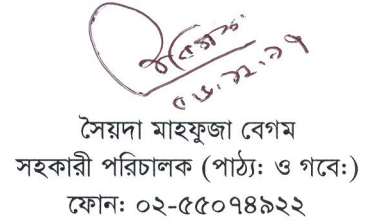 সৈয়দা মাহফুজা বেগম
সহকারী পরিচালক (পাঠ্য: ও গবে:)
ফোন: ০২-৫৫০৭৪৯২২